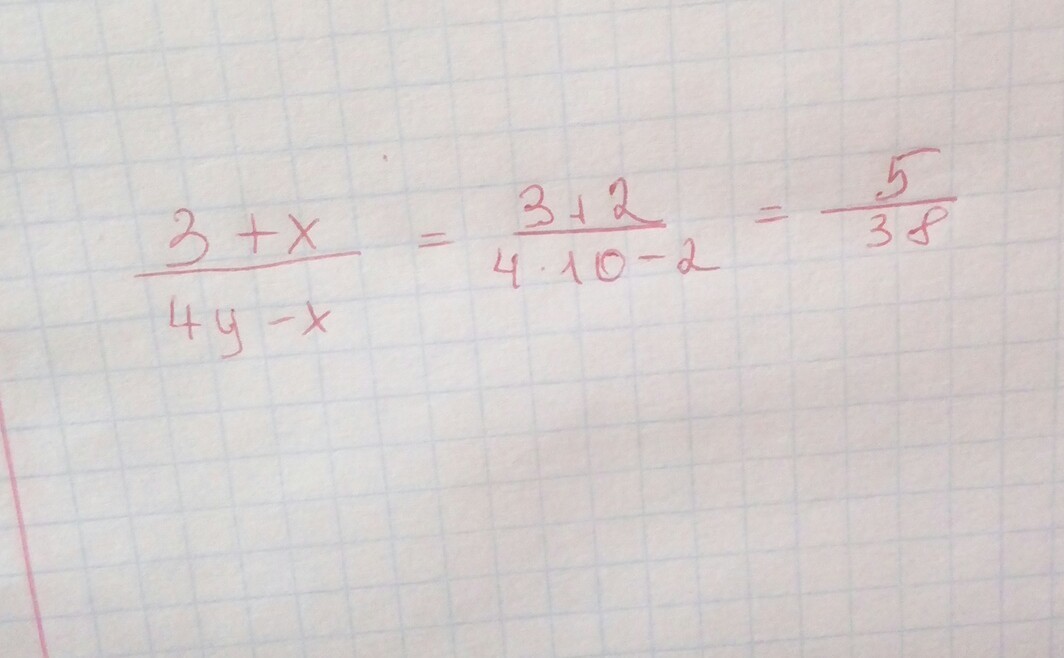 3 + x / 4y - x = 3 + 2 / 4 · 10 - 2 = 5 / 38